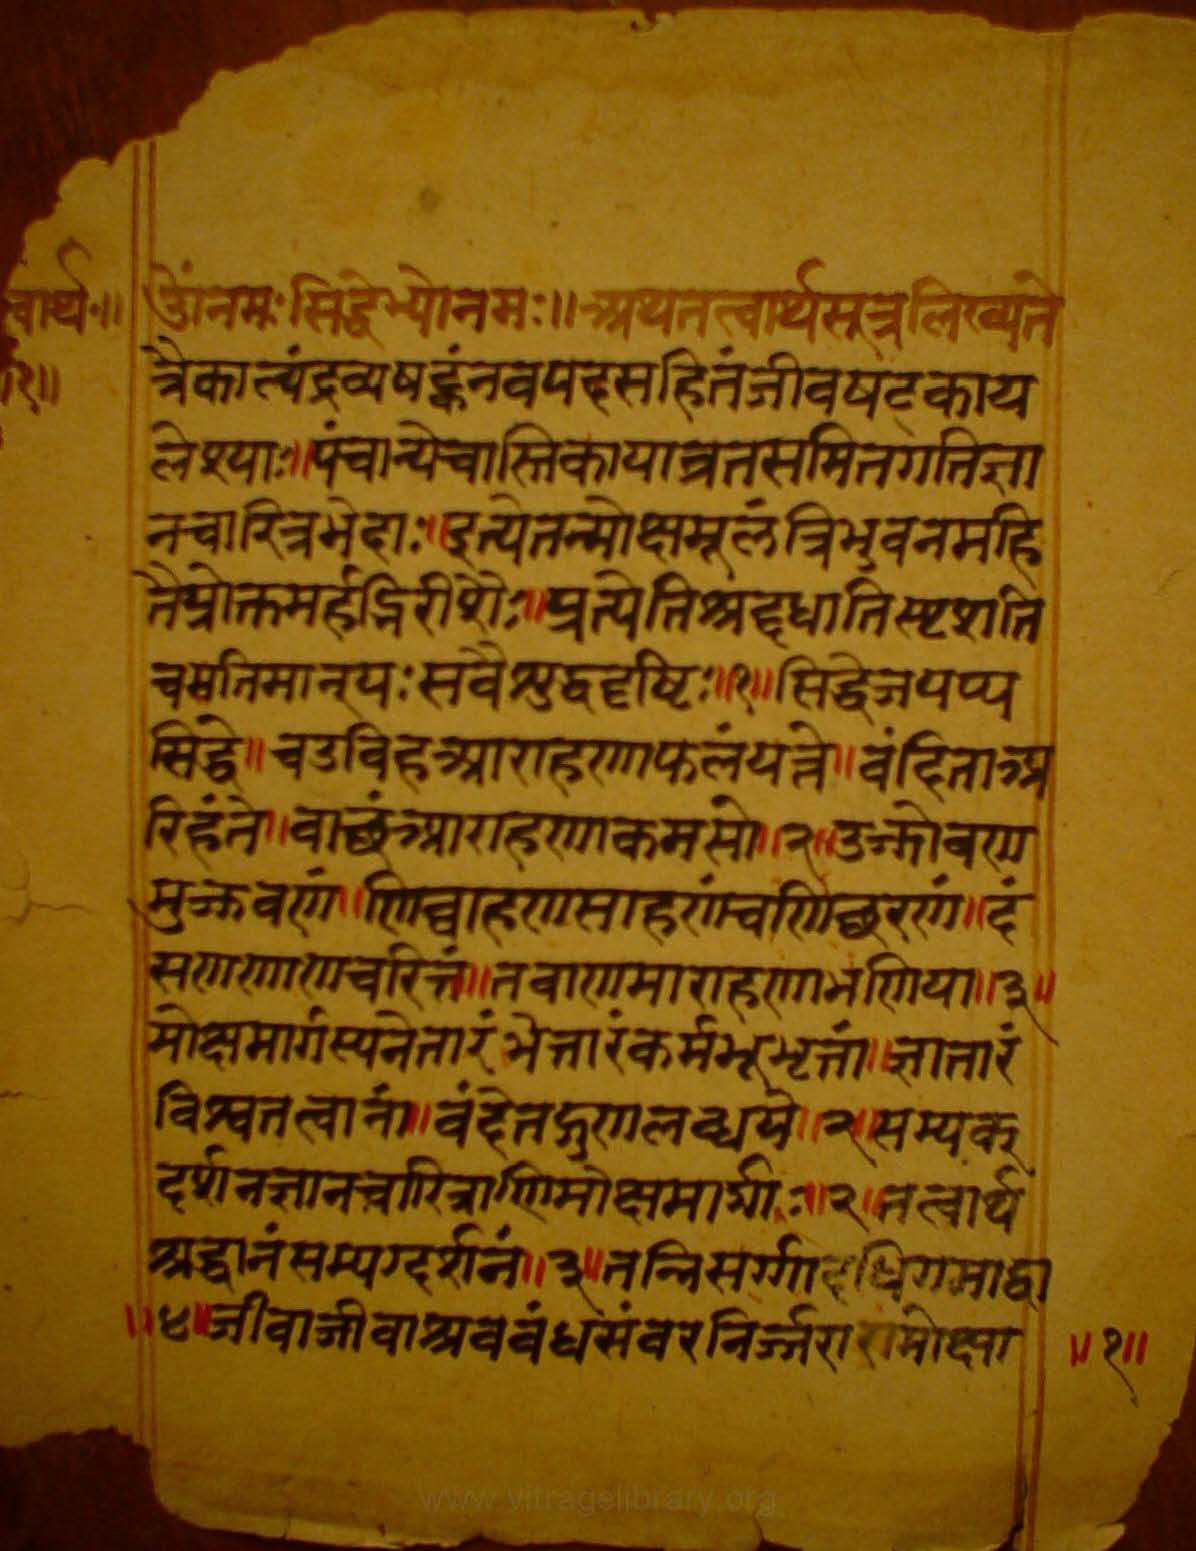 वार्थ॥ उांनमः सिद्धेभ्योनमः॥ अथतत्वार्थसूत्रलिख्यते
त्रैकाल्यंद्रव्यषट्कंनवपदसहितंजीवषटकाय
लेश्याः॥पंचान्येचास्तिकायाव्रतसमितगतिज्ञा
नचारित्रभेदाः॥इत्येतन्मोक्षमूलंत्रिभुवनमहि
तैप्रोक्तमर्हद्भिरीशैः॥प्रत्येतिश्रद्दधातिस्पृशति
चमतिमान्यः सवैशुद्धदृष्टिः॥१॥सिद्धेजयप्प
सिद्धे॥चउविहआराहणाफलंयत्ते॥वंदिताअ
रिहंते॥वाछंआराहणाकमसो॥२॥उज्झोवण
मुज्झवणं॥णिव्वाहणसाहणंचणिछरणं॥दं
सणणाणचरित्तं॥तवाणमाराहणाभणिया॥३॥
मोक्षमार्गस्यनेतारंभेत्तारंकर्मभूभृत्तां॥ज्ञात्तारं
विश्वतत्वानां॥वंदेतद्गुणलब्धये॥२॥सम्यक्
दर्शनज्ञानचारित्राणिमोक्षमार्गाः॥२॥तत्वार्थ
श्रद्धानंसम्यग्दर्शनं॥३॥तन्निसर्ग्गादधिगमाद्वा
॥४॥जीवाजीवाश्रवबंधसंवरनिर्ज्जरामोक्षा ॥१॥